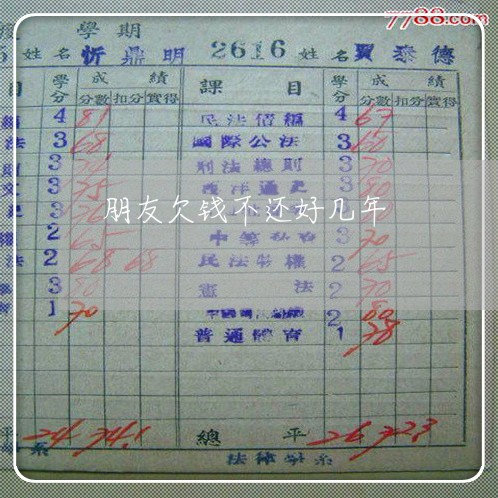 7788.com
學期
姓名 忻鼎明 2616 姓名 賈泰德
目 學分 成績 課目 學分 成績
分數 扣分 實得 分數 扣分 實得
4 81 民法債編 4 67
法 3 68 國際公法 3 60
3 刑法總則 3 70
3 75 西洋通史 3 80
朋友欠钱不还好几年
2 65 3 70
法 2 68 68 民法物權 2 65
3 80 憲法 2 70
1 70 2 80
普通體育 1 78
平 24 74.1 總平 26 72.3
系 法律學系